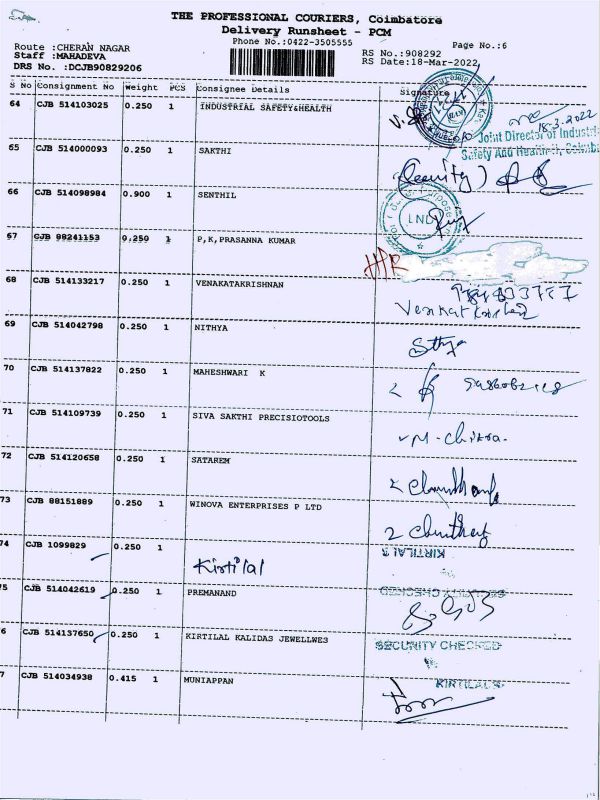 THE PROFESSIONAL COURIERS, Coimbatore
Delivery Runsheet - PCM
Phone No.:0422-3505555
Page No.:6
Route :CHERAN NAGAR
Staff :MAHADEVA
DRS No. :DCJB90829206
RS No.:908292
RS Date:18-Mar-2022
S No Consignment No Weight PCS Consignee Details Signature
64 CJB 514103025 0.250 1 INDUSTRIAL SAFETY&HEALTH
18.3.2022
Joint Director of Industrial
Safety And Health
65 CJB 514000093 0.250 1 SAKTHI
(Security)
66 CJB 514098984 0.900 1 SENTHIL
67 CJB 88241153 0.250 1 P,K,PRASANNA KUMAR
68 CJB 514133217 0.250 1 VENAKATAKRISHNAN
69 CJB 514042798 0.250 1 NITHYA
70 CJB 514137822 0.250 1 MAHESHWARI K
71 CJB 514109739 0.250 1 SIVA SAKTHI PRECISIOTOOLS
72 CJB 514120658 0.250 1 SATAREM
73 CJB 88151889 0.250 1 WINOVA ENTERPRISES P LTD
74 CJB 1099829 0.250 1 Kirtilal
KIRTILALS
5 CJB 514042619 0.250 1 PREMANAND
SECURITY CHECKED
6 CJB 514137650 0.250 1 KIRTILAL KALIDAS JEWELLWES
SECURITY CHECKED
7 CJB 514034938 0.415 1 MUNIAPPAN
KIRTILALS